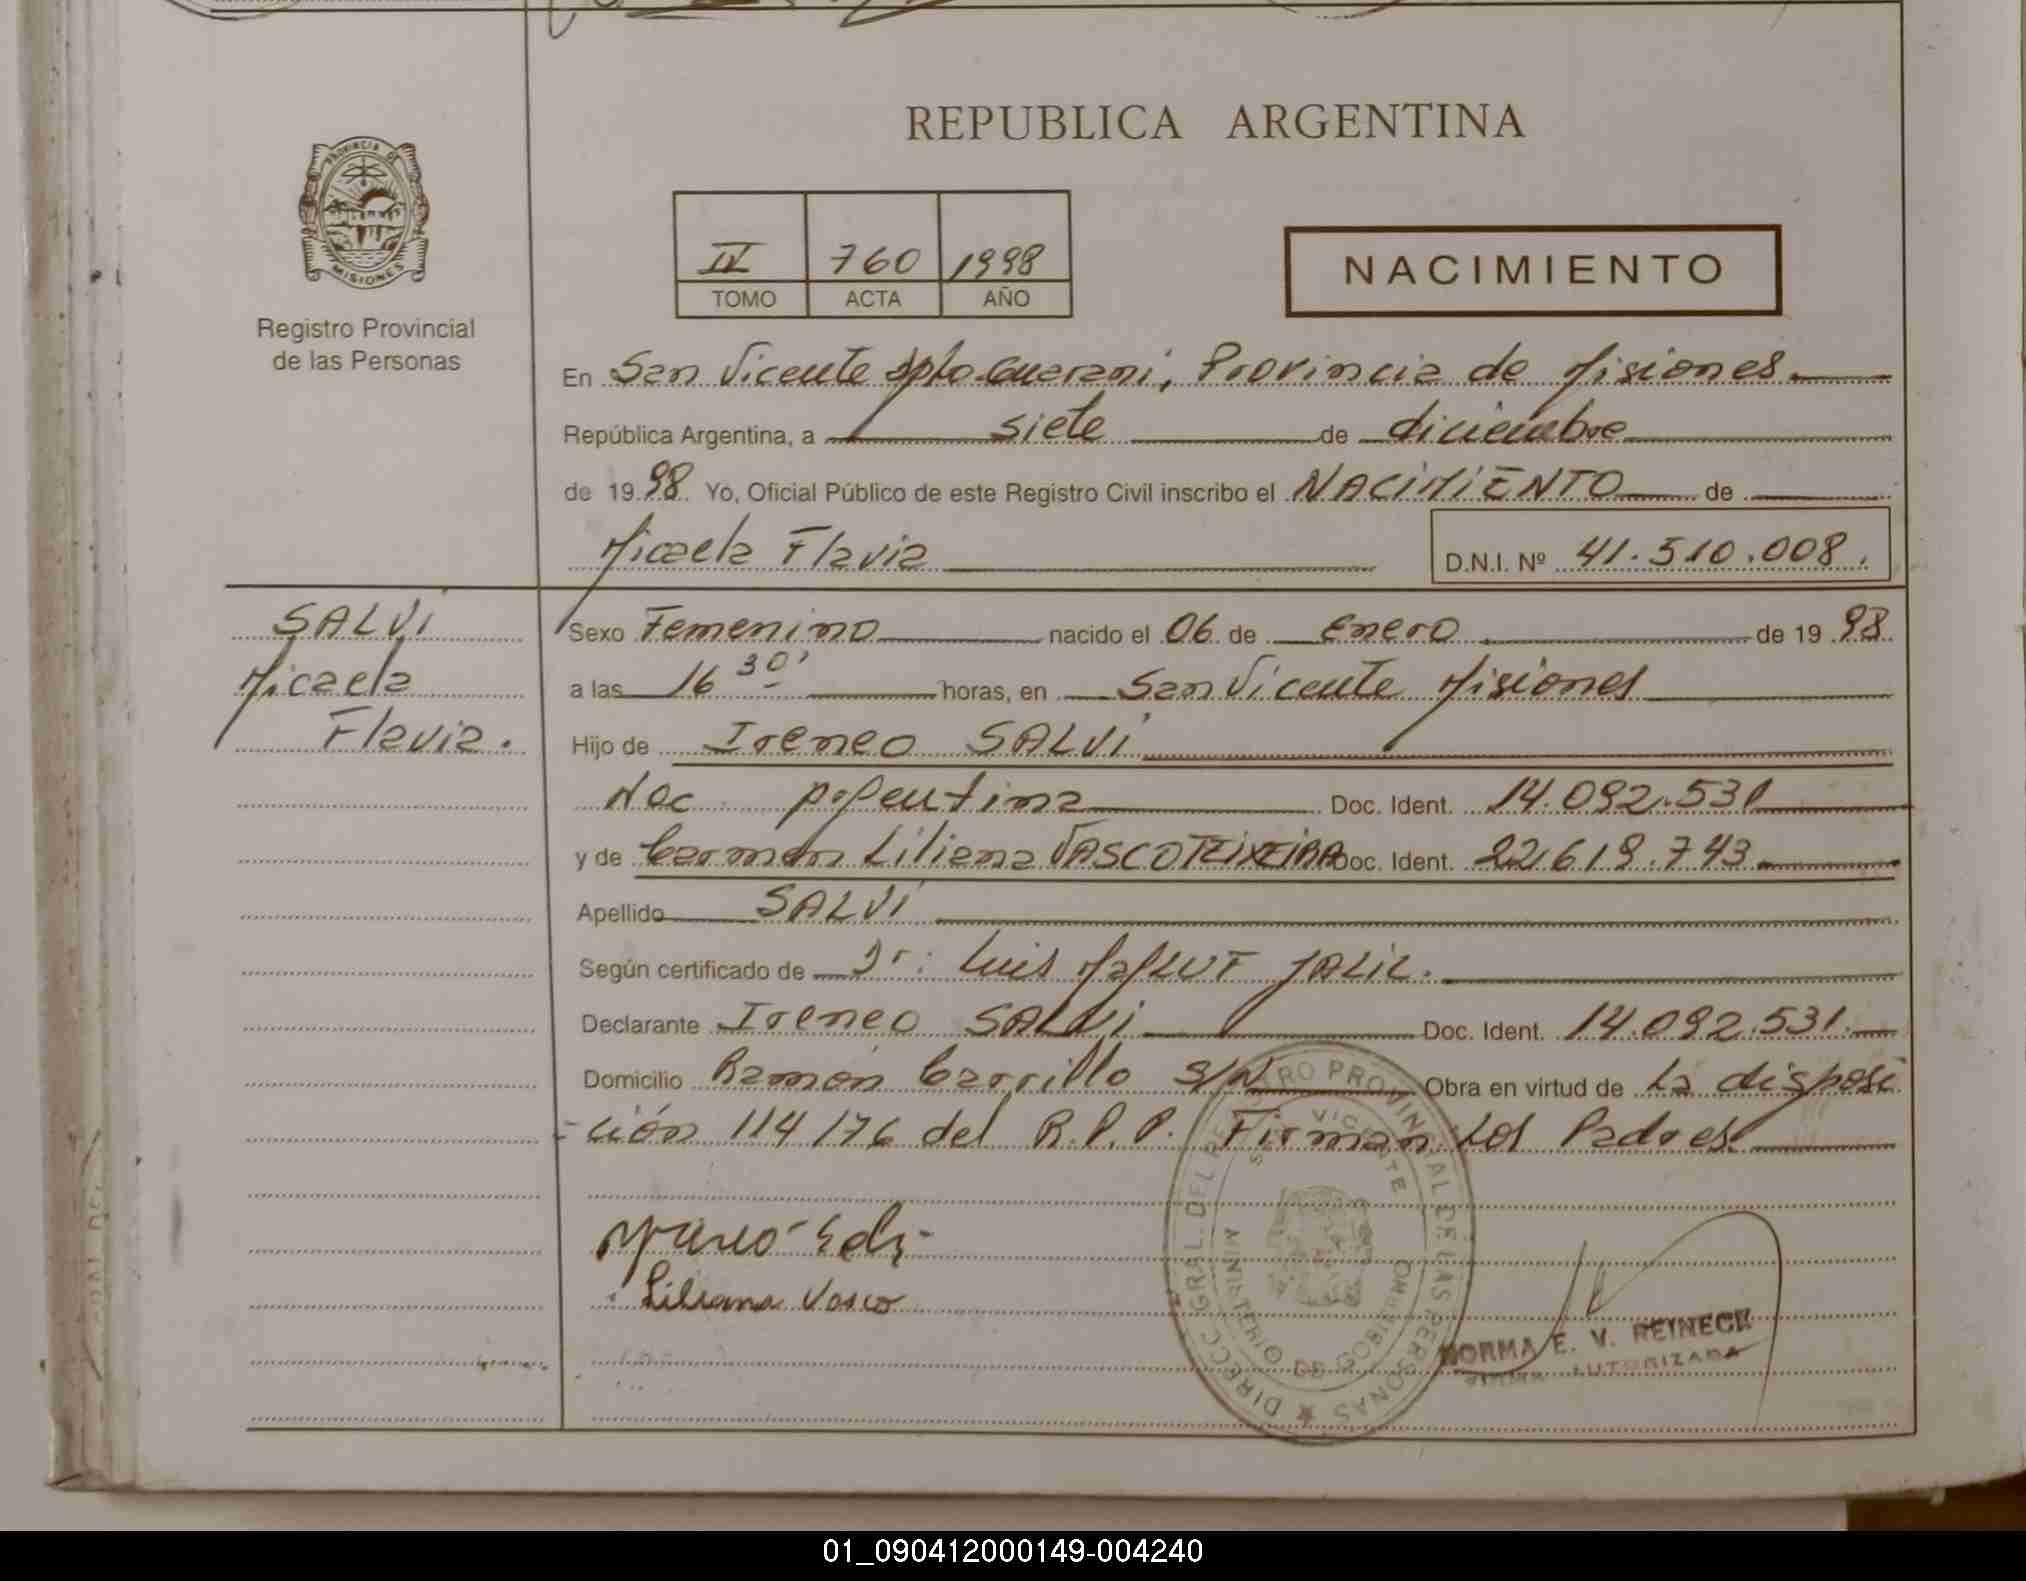 REPUBLICA ARGENTINA
PROVINCIA DE
MISIONES
Registro Provincial
de las Personas
IV 760 1998
TOMO ACTA AÑO
NACIMIENTO
En San Vicente Dpto. Guarani, Provincia de Misiones.
República Argentina, a siete de diciembre
de 1998. Yo, Oficial Público de este Registro Civil inscribo el NACIMIENTO de
Micaela Flavia D.N.I. Nº 41.510.008.
SALVI
Micaela
Flavia.
Sexo Femenino nacido el 06 de enero de 1998
a las 16 30' horas, en San Vicente Misiones
Hijo de Ireneo SALVI
Nac. Argentina Doc. Ident. 14.092.531
y de Carmen Liliana VASCO TEIXEIRA Doc. Ident. 22.619.743
Apellido SALVI
Según certificado de Dr: Luis MALUF JALIL.
Declarante Ireneo SALVI Doc. Ident. 14.092.531.
Domicilio Ramón Carrillo S/N Obra en virtud de La disposi
-ción 114/76 del R.P.P. Firman Los Padres.
Liliana Vasco
DIRECC. GRAL. DEL REGISTRO PROVINCIAL DE LAS PERSONAS
SAN VICENTE
MINISTERIO DE GOBIERNO
NORMA E. V. REINECK
FIRMA AUTORIZADA
01_090412000149-004240